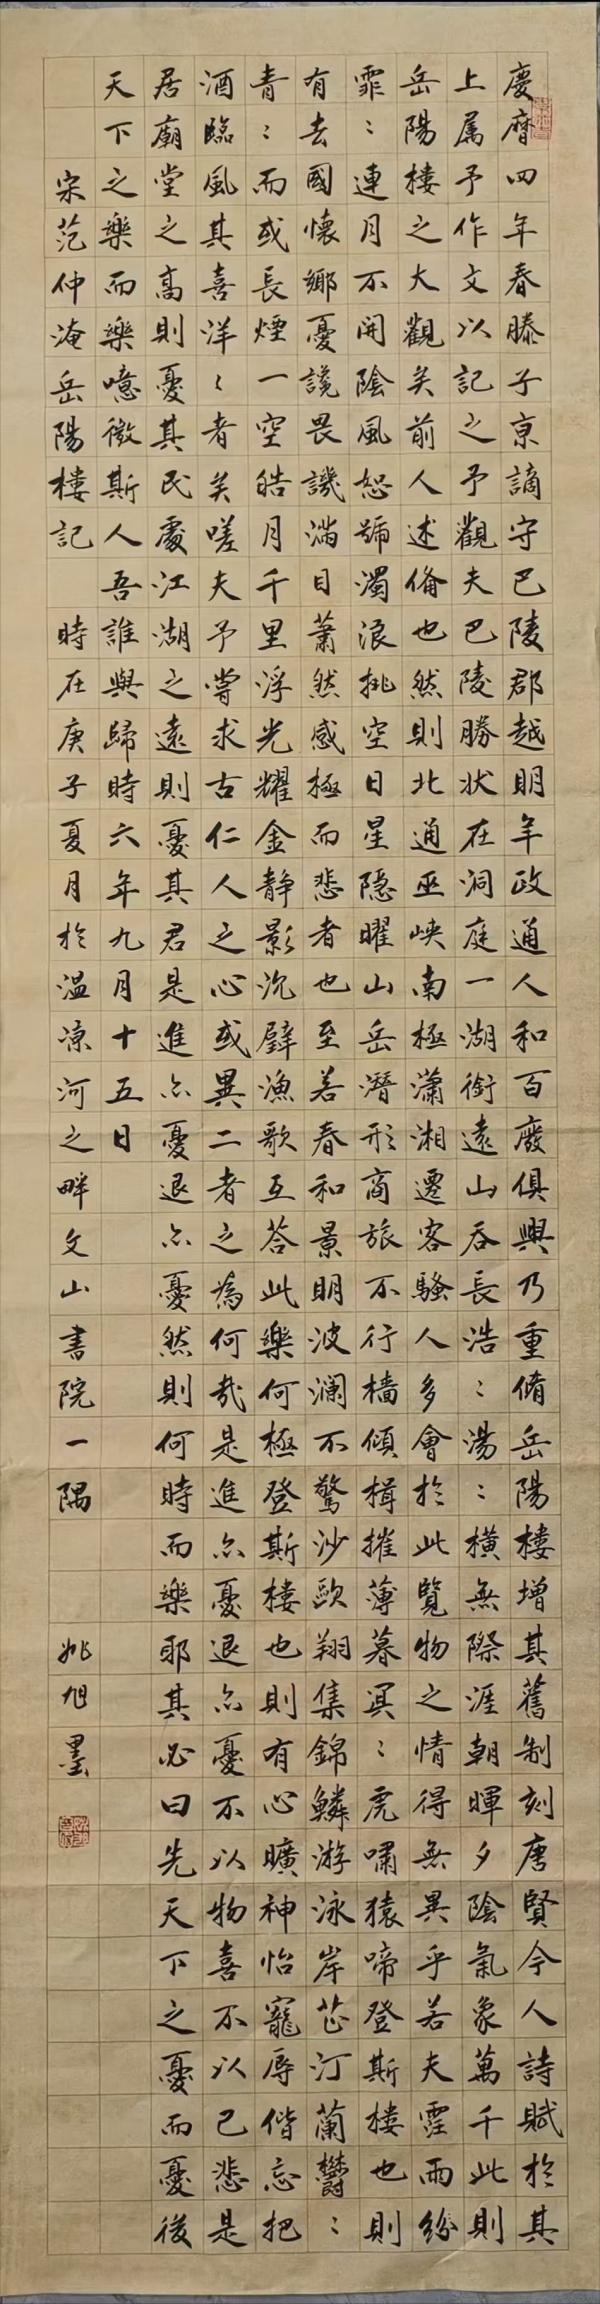 慶曆四年春滕子京謫守巴陵郡越明年政通人和百廢俱興乃重脩岳陽樓增其舊制刻唐賢今人詩賦於其
上属予作文以記之予觀夫巴陵勝状在洞庭一湖銜遠山吞長浩〻湯〻橫無際涯朝暉夕陰氣象萬千此則
岳陽樓之大觀矣前人述備也然則北通巫峽南極瀟湘遷客騷人多會於此覽物之情得無異乎若夫霪雨紛
霏〻連月不開陰風怒號濁浪排空日星隱曜山岳潛形商旅不行檣傾楫摧薄暮冥〻虎嘯猿啼登斯樓也則
有去國懷鄉憂讒畏譏滿目蕭然感極而悲者也至若春和景明波澜不驚沙鷗翔集錦鱗游泳岸芷汀蘭鬱〻
青〻而或長煙一空皓月千里浮光耀金静影沉璧漁歌互荅此樂何極登斯樓也則有心曠神怡寵辱偕忘把
酒臨風其喜洋〻者矣嗟夫予嘗求古仁人之心或異二者之為何哉是進亦憂退亦憂不以物喜不以己悲是
居廟堂之高則憂其民處江湖之遠則憂其君是進亦憂退亦憂然則何時而樂耶其必曰先天下之憂而憂後
天下之樂而樂噫微斯人吾誰與歸時六年九月十五日
宋范仲淹岳陽樓記 時在庚子夏月於温凉河之畔文山書院一隅 姚旭墨